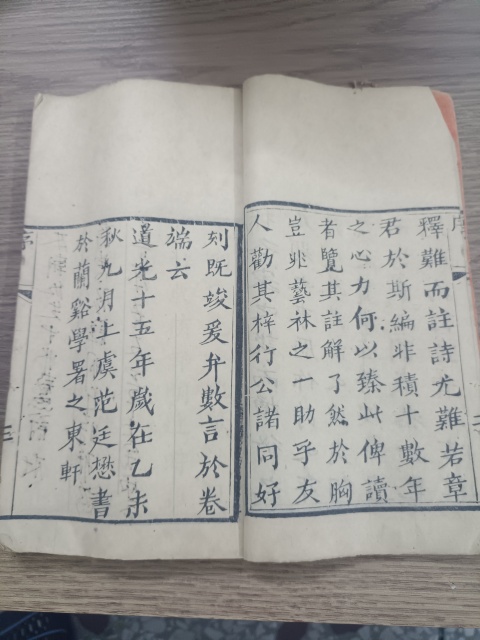 釋難而註詩尤難若章
君於斯編非積十數年
之心力何以臻此俾讀
者覽其註解了然於胸
豈非藝林之一助乎友
人勸其梓行公諸同好
刻既竣爰弁數言於卷
端云
道光十五年歲在乙未
秋九月上虞范廷懋書
於蘭谿學署之東軒